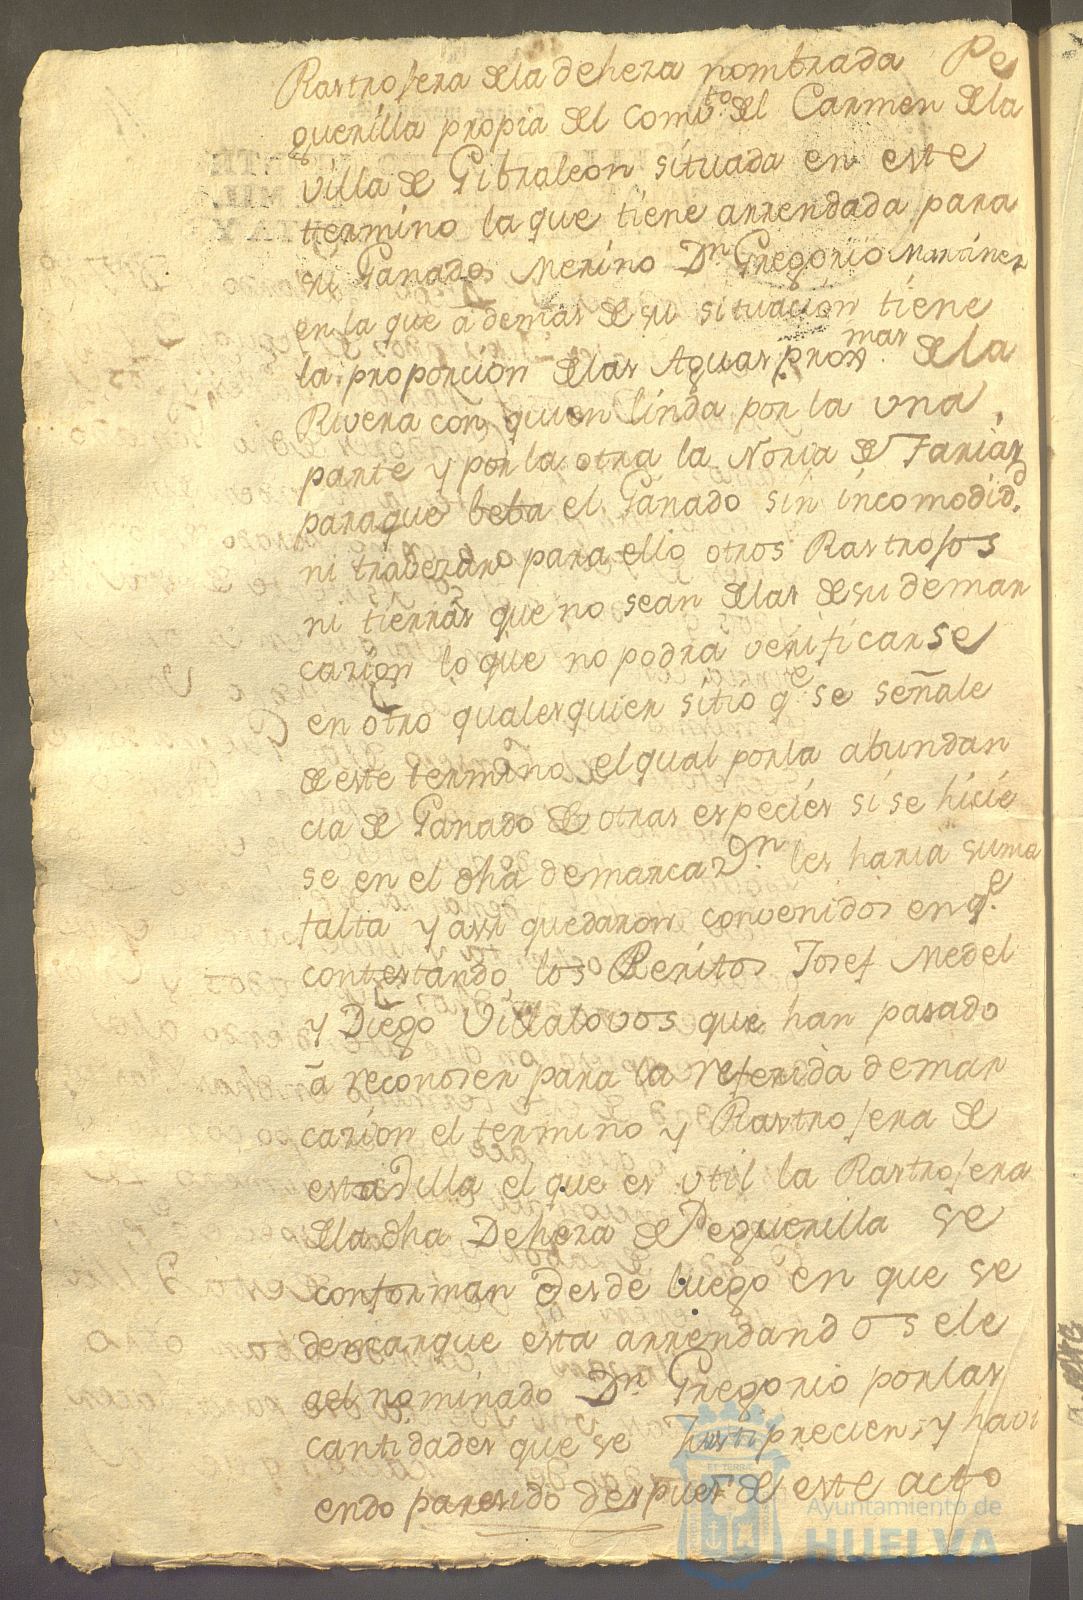 Rastrojera de la deheza nombrada Pe
guerilla propia del Combto. del Carmen de la
villa de Gibraleon situada en este
termino la que tiene arrendada para
su Ganados Merino Dn. Gregorio Martinez
en la que ademas de su situacion tiene
la proporcion de las Aguas proxmas. de la
Rivera con quien linda por la una
parte y por la otra la Noria de Farias
paraque beba el Ganado sin incomodidd.
ni trabezar para ello otros Rastrojos
ni tierras que no sean de las de su demar
cazion lo que no podra verificarse
en otro qualesquier sitio qe. se señale
de este termino el qual por la abundan
cia de Ganado de otras especies si se hicie
se en el dha demarcazn. les haria suma
falta y assi quedaron convenidos en qe.
contestando los Peritos Josef Medel
y Diego Villalovos que han pasado
â reconoser para la referida demar
cazion el termino y Rastrojera de
esta Villa el que es util la Rastrojera
de la dha Deheza de Peguerilla se
conforman desde luego en que se
demarque esta arrendandosele
ael nominado Dn. Gregorio por las
cantidades que se Justiprecien, y havi
endo paresido despues de este acto
Ayuntamiento de
HUELVA